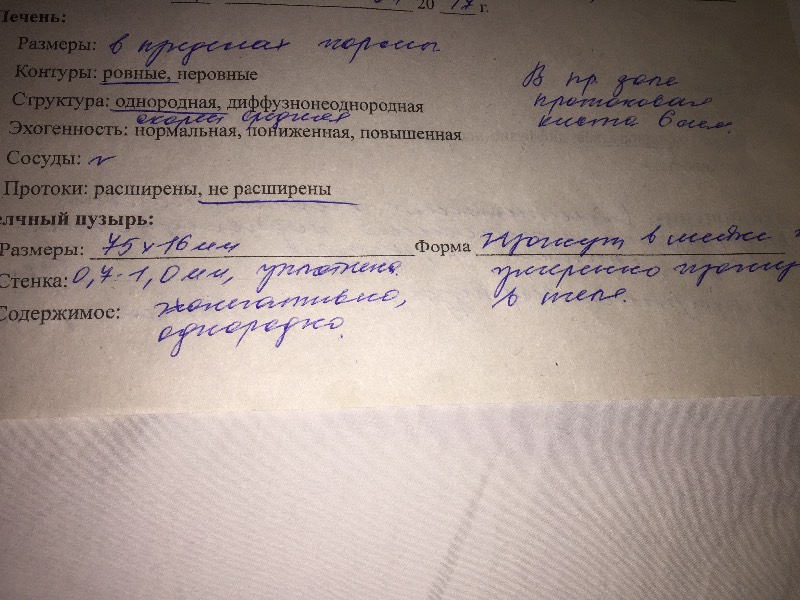 20 17 г.
Печень:
Размеры: в пределах нормы
Контуры: ровные, неровные
В пр доле
Структура: однородная, диффузнонеоднородная
протоковая
средняя
киста 6 мм.
Эхогенность: нормальная, пониженная, повышенная
Сосуды: N
Протоки: расширены, не расширены
елчный пузырь:
Размеры: 75 х 16 мм Форма изогнут в шейке
Стенка: 0,7-1,0 мм, уплотнена. умеренно
в теле.
Содержимое: эхонегативно,
однородно.